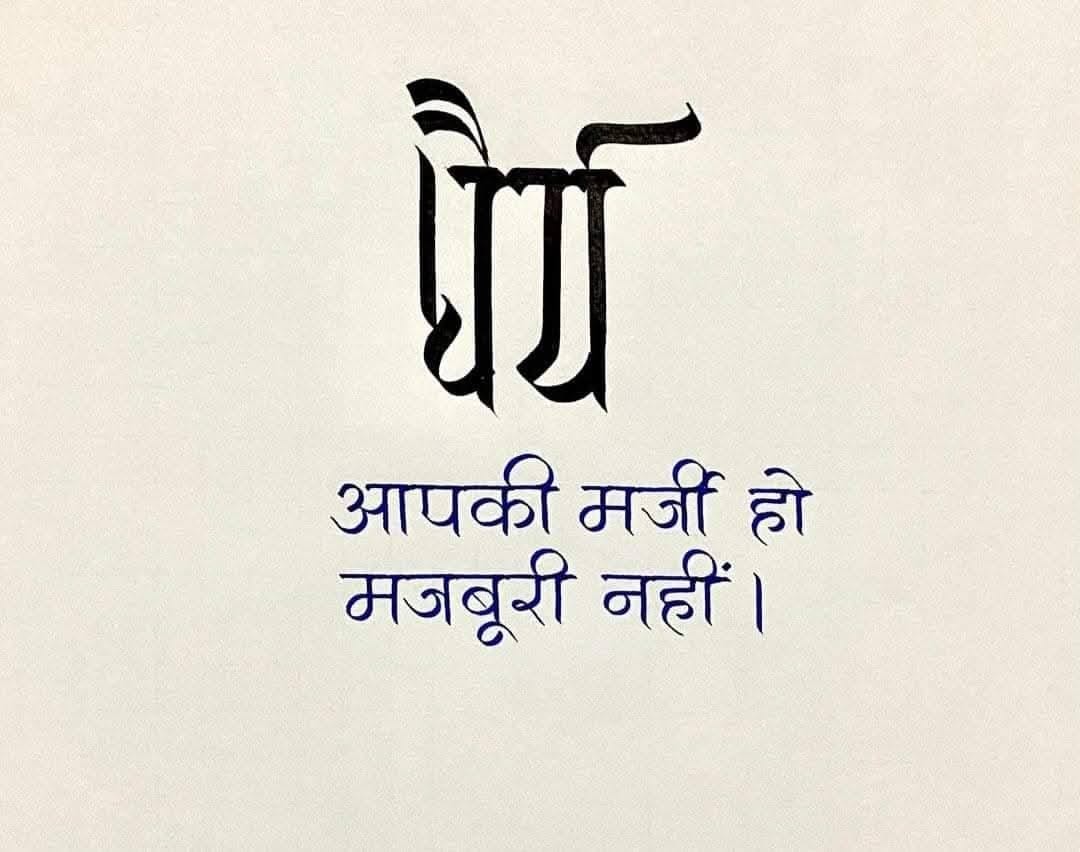 धैर्य
आपकी मर्जी हो
मजबूरी नहीं।